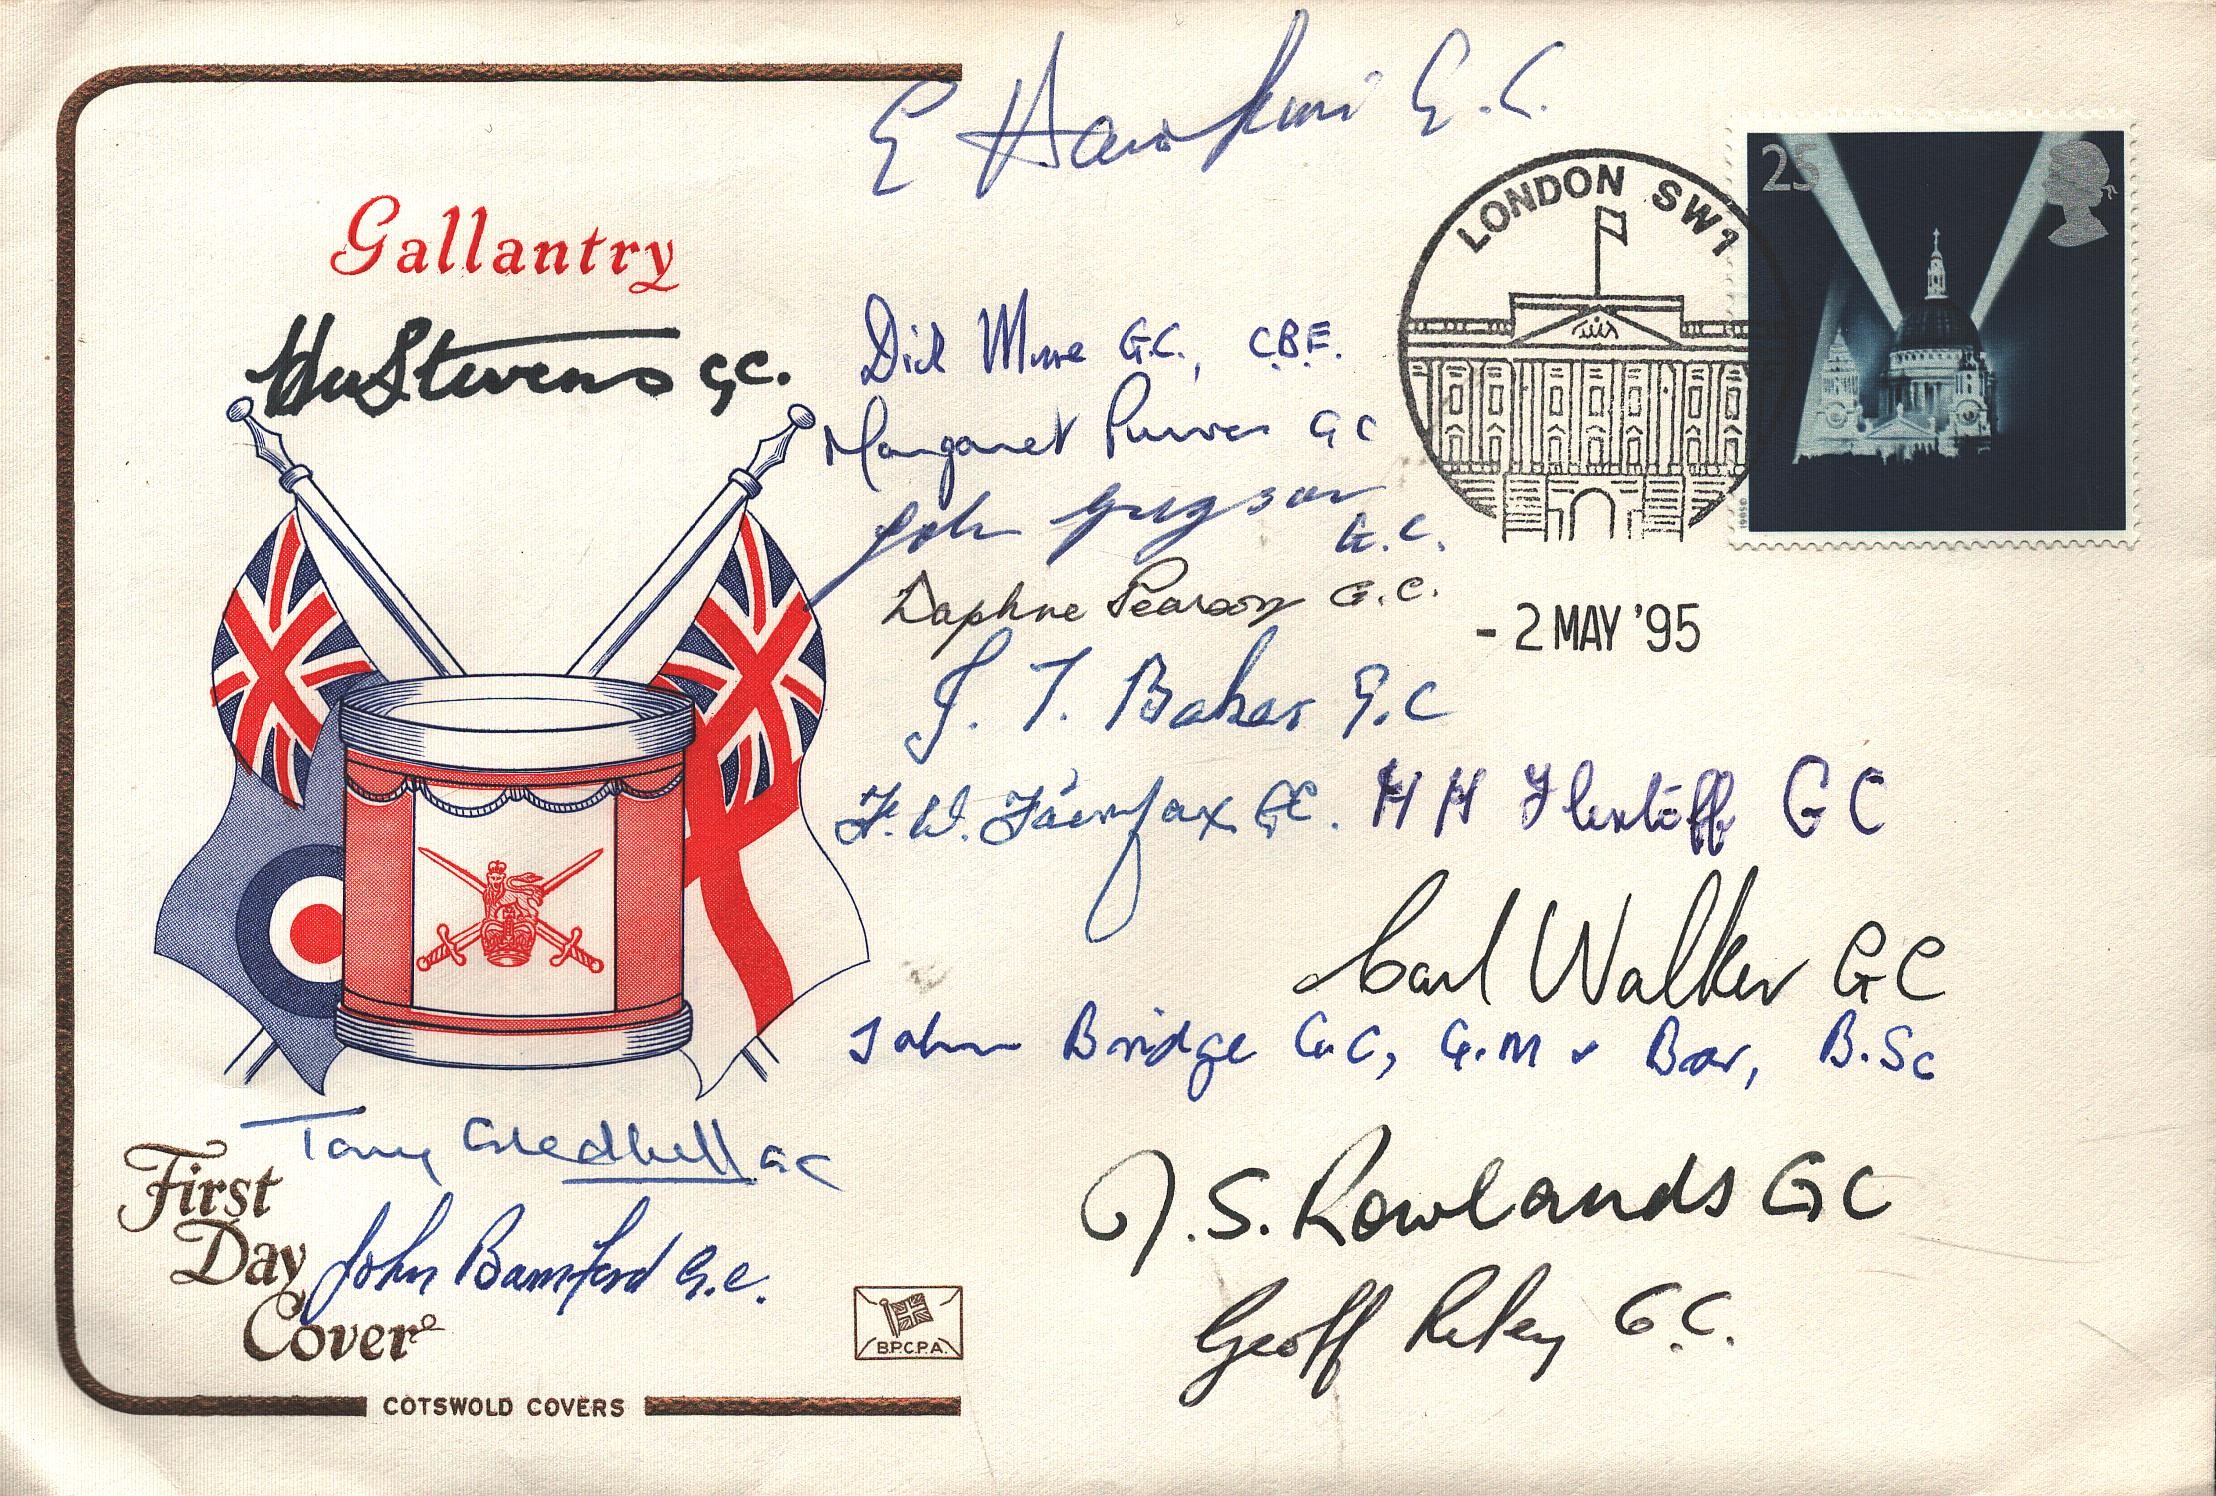 E Hawkins G.C.
LONDON SW1
25
Gallantry
Stevens GC.
Dick Moore G.C., C.B.E.
Margaret Purves GC
John Gregson
G.C.
Daphne Pearson G.C.
- 2 MAY '95
J. T. Baker G.C
F. W. Fairfax GC.
H H Flintoff GC
Carl Walker GC
John Bridge G.C, G.M & Bar, B.Sc
Tony Gledhill GC
J.S. Rowlands GC
First
Day
Cover
John Bamford G.C.
Geoff Riley G.C.
B.P.C.P.A.
COTSWOLD COVERS